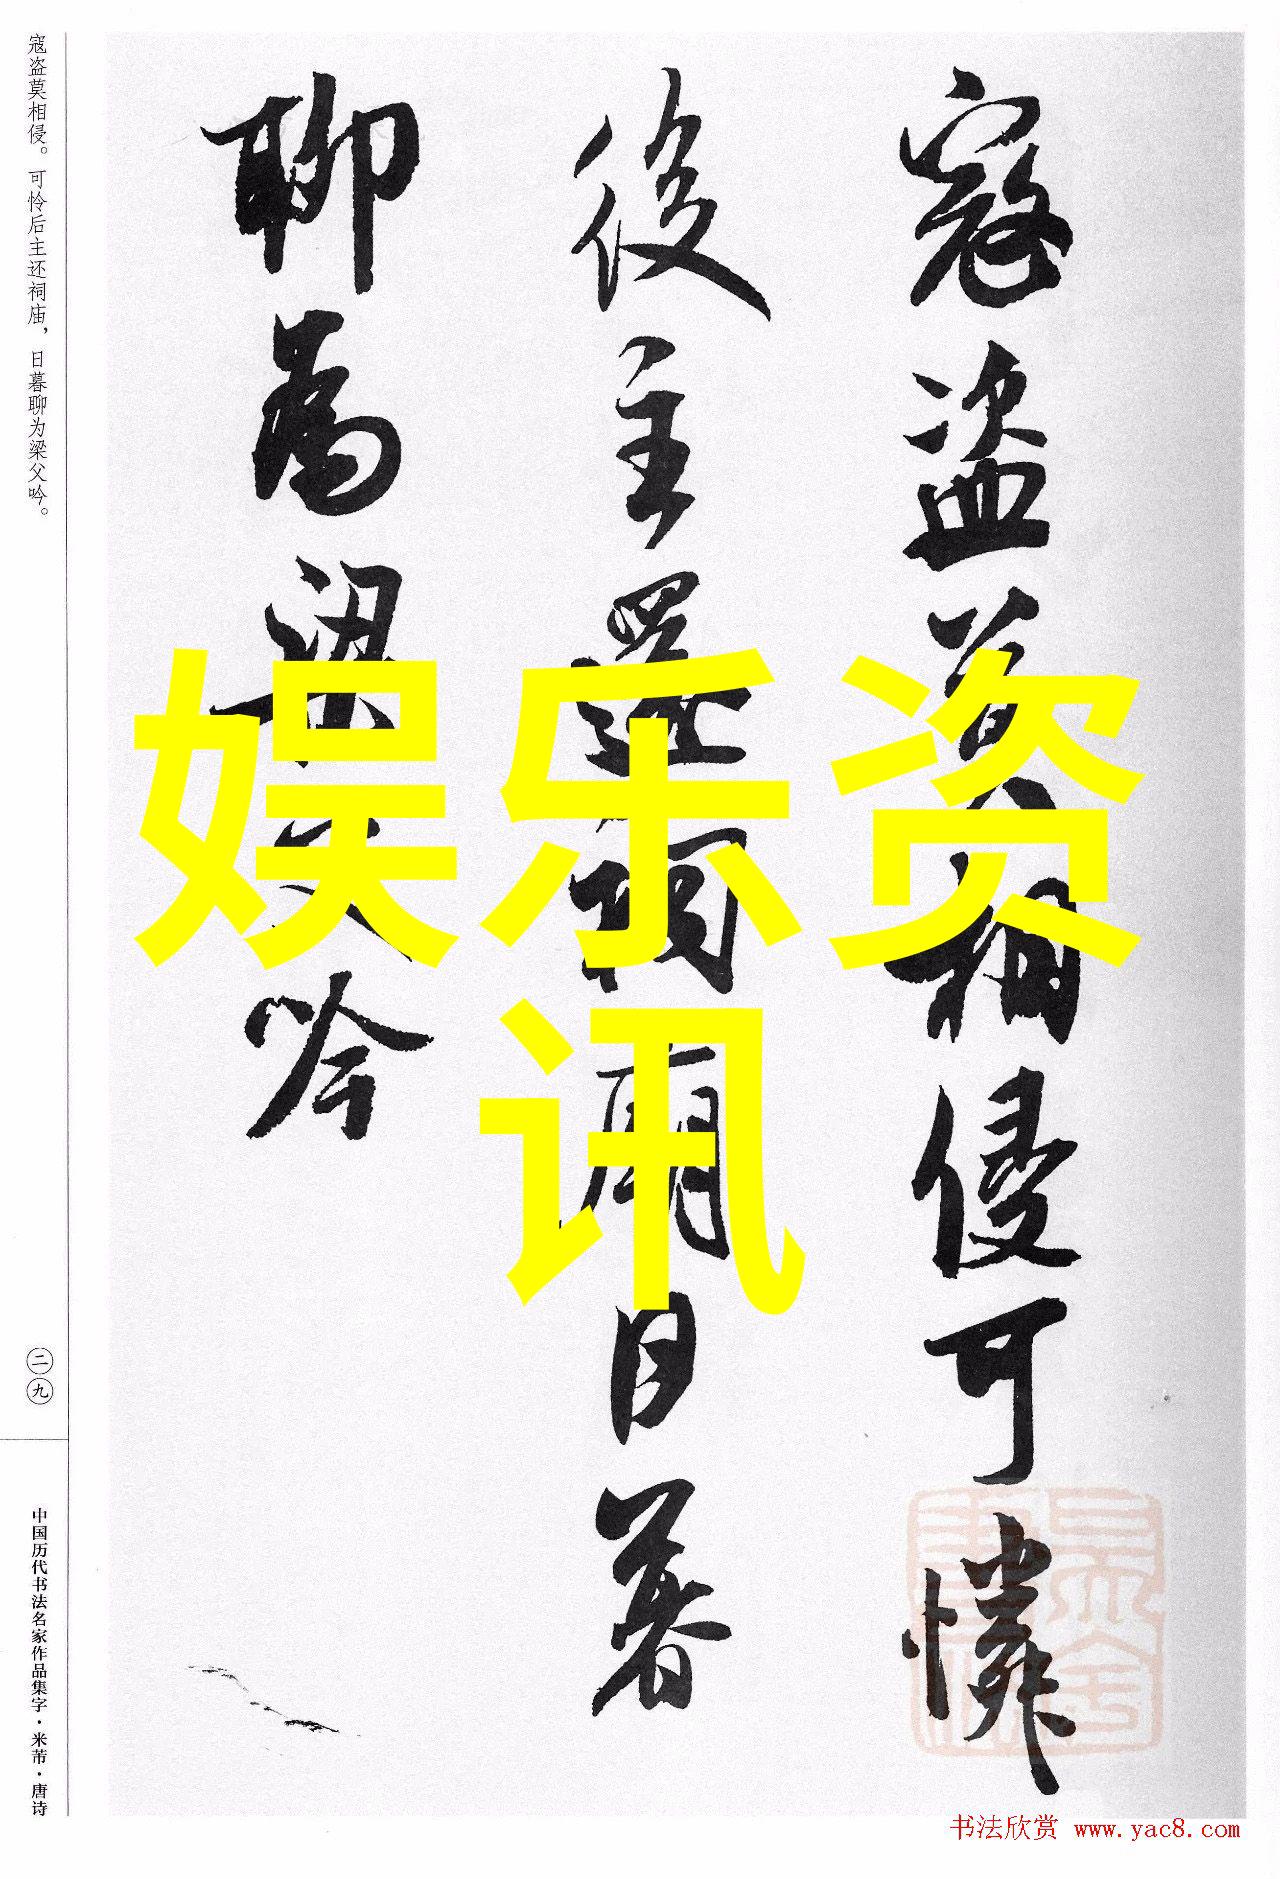 寇盗莫相侵可憐
後主還祠廟日暮
聊為梁父吟
娱乐资
讯
寇盗莫相侵。可怜后主还祠庙，日暮聊为梁父吟。
二九
中国历代书法名家作品集字·米芾·唐诗
书法欣赏 www.yac8.com